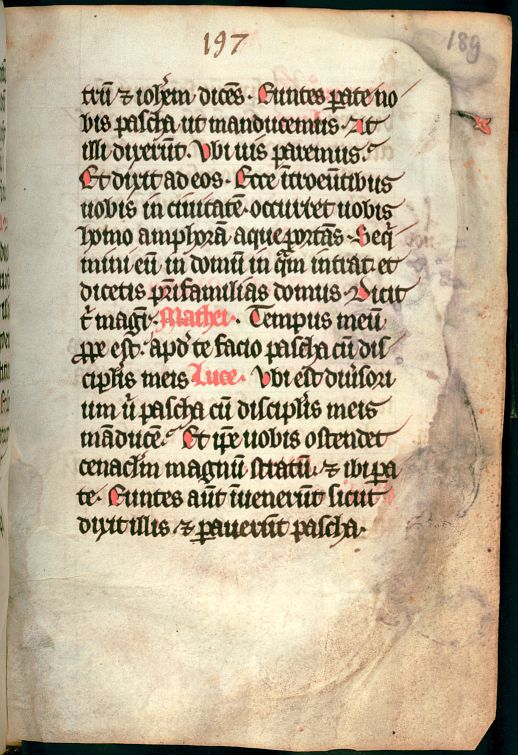 197
189
trū ⁊ ioh̄em dicēs. Euntes ꝑate no
bis pascha ut manducemus. At
illi dixerūt. Vbi uis paremus.
Et dixit ad eos. Ecce ītroeūtibus
uobis in ciuitatē. occurret uobis
homo amphorā aque portās. Seq̄
mini eū in domū in q̄m intrat. et
dicetis pr̄ifamilias domus. Dicit
t̄ magr̄. Mathei. Tempus meū
ꝓpe est. apd̄ te facio pascha cū dis
ciplīs meis Luce. Vbi est diūsori
um ū pascha cū disciplīs meis
māducē. Et ip̄e uobis ostendet
cenaclm̄ magnū stratū. ⁊ ibi ꝑa
te. Euntes aūt īuenerūt sicut
dixit illis. ⁊ ꝑauerūt pascha.